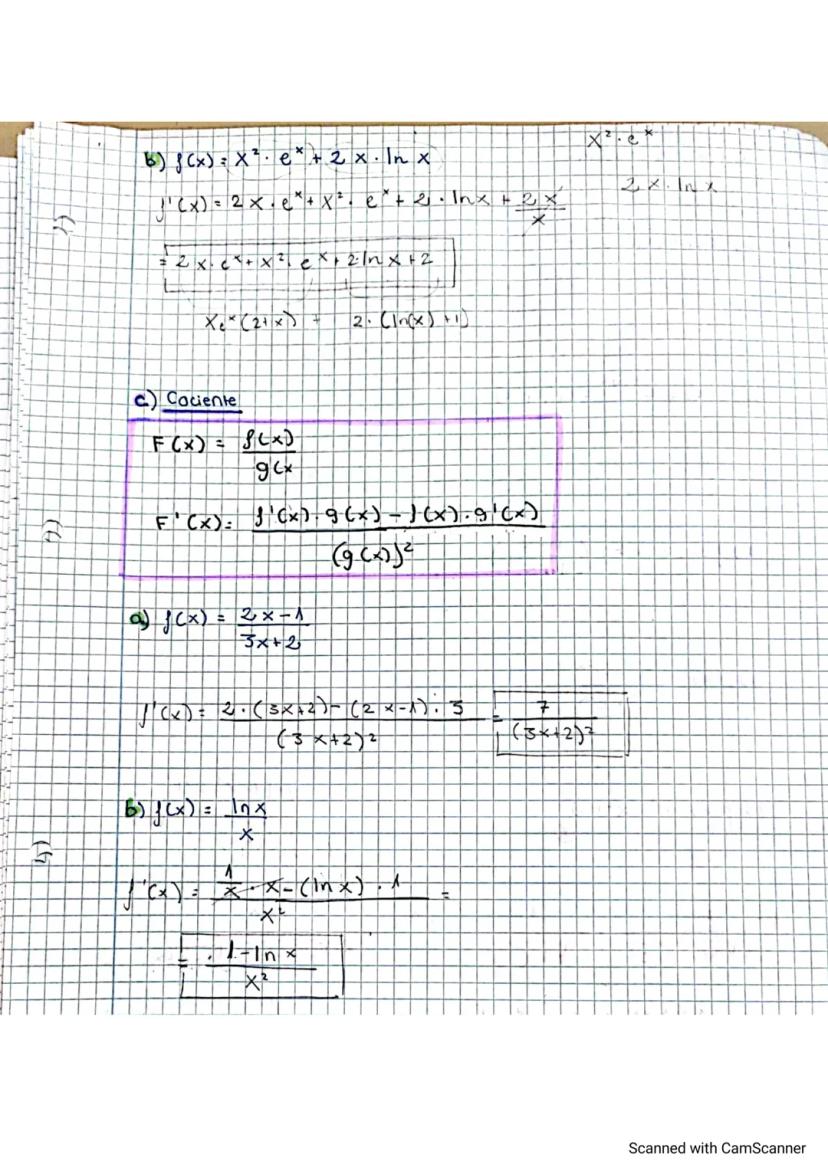 x² · eˣ
b) f(x) = x² · eˣ + 2x · ln x
2x · ln x
f'(x) = 2x · eˣ + x² · eˣ + 2 · ln x + 2x/x
= 2x · eˣ + x² · eˣ + 2 · ln x + 2
xeˣ (2+x) + 2 · (ln(x) + 1)
c) Cociente
F(x) = f(x)/g(x
F'(x) = f'(x) · g(x) - f(x) · g'(x)/(g(x))²
a) f(x) = 2x-1/3x+2
f'(x) = 2 · (3x+2) - (2x-1) · 3/(3x+2)² = 7/(3x+2)²
b) f(x) = ln x/x
f'(x) = 1/x · x - (ln x) · 1/x² =
= 1 - ln x/x²
Scanned with CamScanner